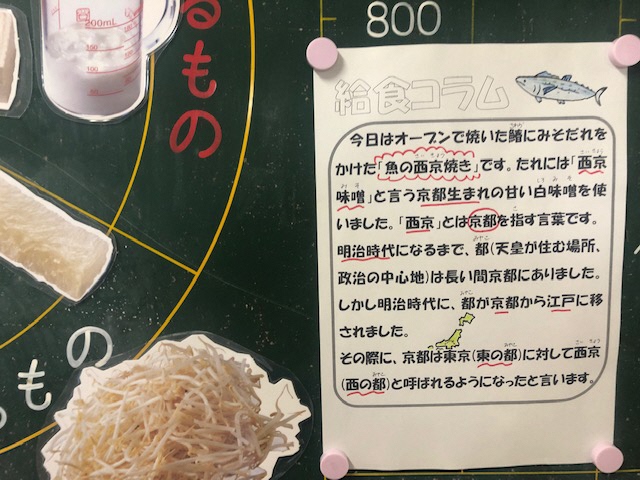 200mL
150
100
50
るもの
800
給食コラム
今日はオーブンで焼いた鰆にみそだれを
かけた「魚の西京焼き」です。たれには「西京
味噌」と言う京都生まれの甘い白味噌を使
いました。「西京」とは京都を指す言葉です。
明治時代になるまで、都(天皇が住む場所、
政治の中心地)は長い間京都にありました。
しかし明治時代に、都が京都から江戸に移
されました。
その際に、京都は東京(東の都)に対して西京
(西の都)と呼ばれるようになったと言います。
もの